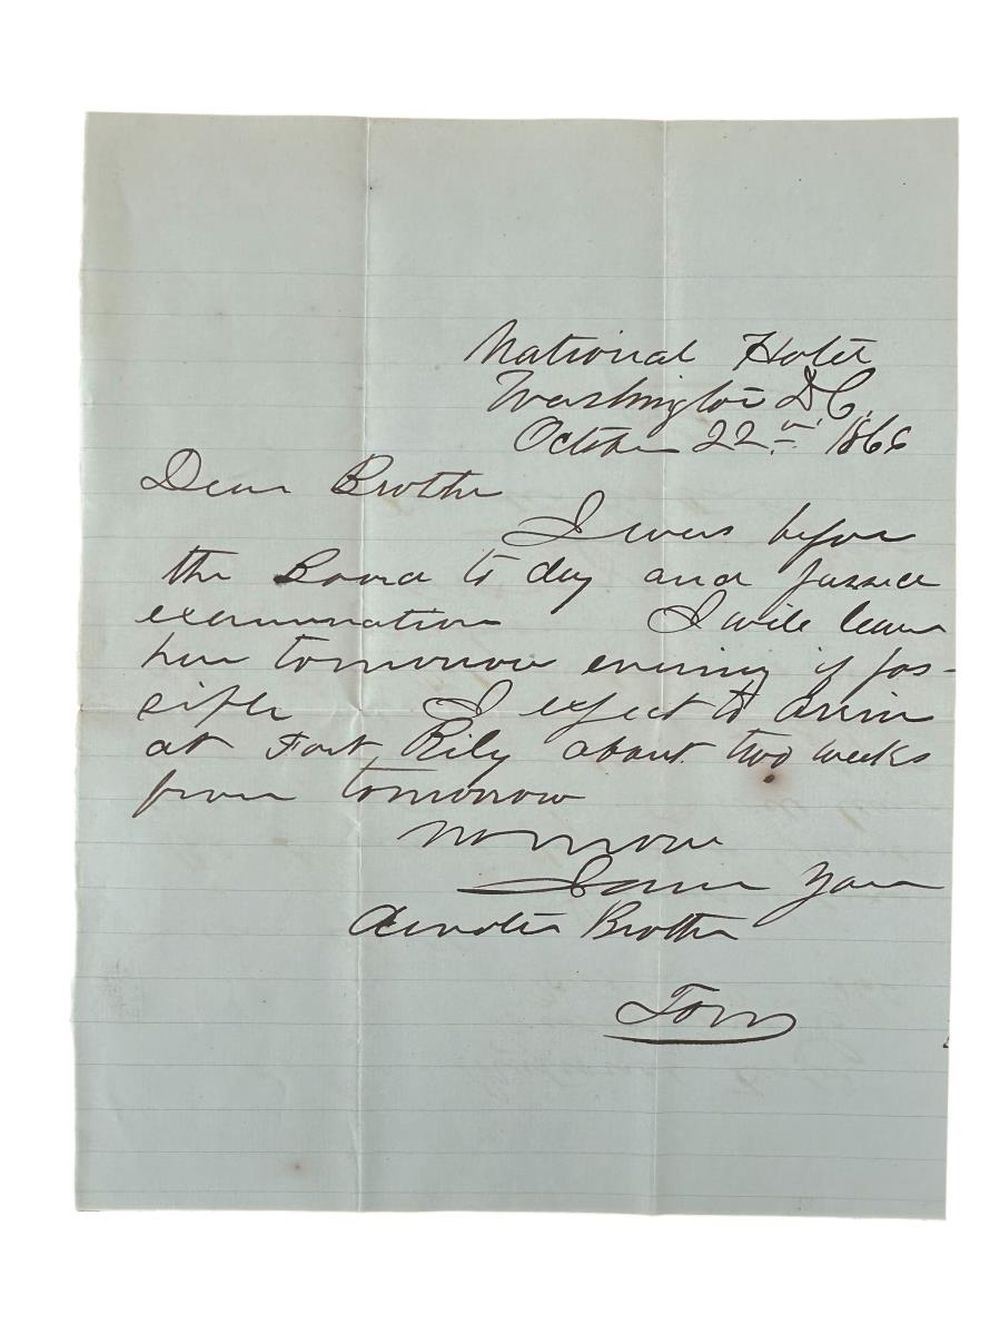 National Hotel
Washington D.C.
October 22nd 1866
Dear Brother
I was before
the Board to day and passed
examination I will leave
here tomorrow evening if pos-
sible I expect to arrive
at Fort Rily about two weeks
from tomorrow
No more
I am Your
devoted Brother
Tom